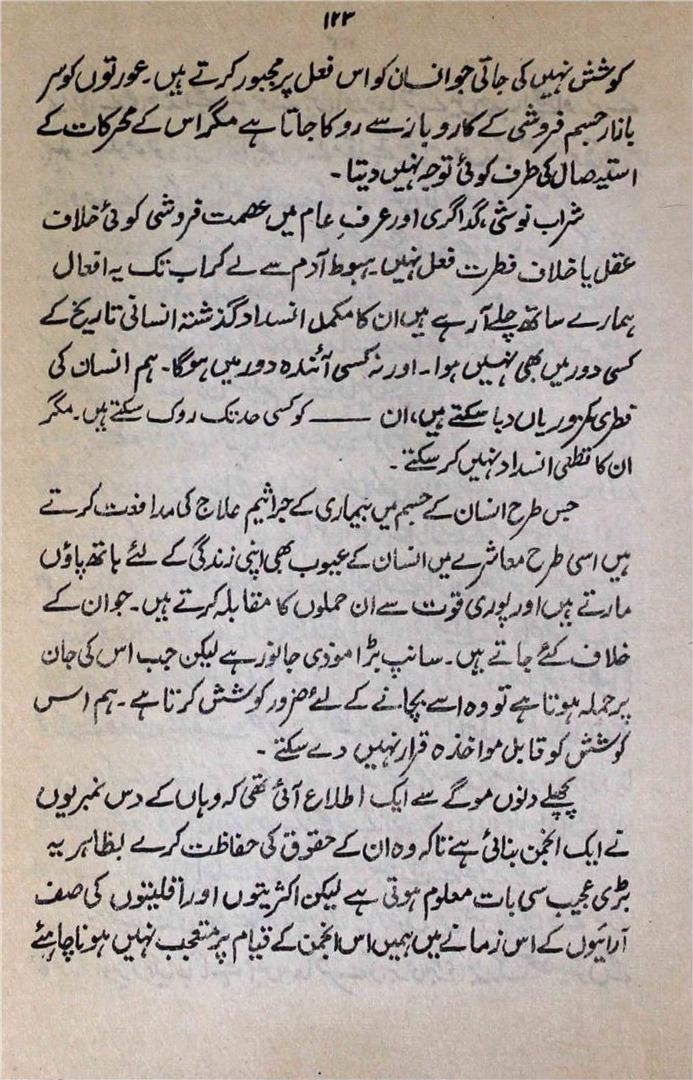 ۱۲۳
کوشش نہیں کی جاتی جو انسان کو اس فعل پر مجبور کرتے ہیں۔ عورتوں کو سر
بازار جسم فروشی کے کاروبار سے روکا جاتا ہے مگر اس کے محرکات کے
استیصال کی طرف کوئی توجہ نہیں دیتا۔
شراب نوشی، گداگری اور عرفِ عام میں عصمت فروشی کوئی خلاف
عقل یا خلاف فطرت فعل نہیں۔ ہبوط آدم سے لے کر اب تک یہ افعال
ہمارے ساتھ چلے آ رہے ہیں ان کا مکمل انسداد گذشتہ انسانی تاریخ کے
کسی دور میں بھی نہیں ہوا۔ اور نہ کسی آئندہ دور میں ہوگا۔ ہم انسان کی
فطری کمزوریاں دبا سکتے ہیں، ان ــــــ کو کسی حد تک روک سکتے ہیں۔ مگر
ان کا قطعی انسداد نہیں کر سکتے۔
جس طرح انسان کے جسم میں بیماری کے جراثیم علاج کی مدافعت کرتے
ہیں اسی طرح معاشرے میں انسان کے عیوب بھی اپنی زندگی کے لئے ہاتھ پاؤں
مارتے ہیں اور پوری قوت سے ان حملوں کا مقابلہ کرتے ہیں۔ جو ان کے
خلاف کئے جاتے ہیں۔ سانپ بڑا موذی جانور ہے لیکن جب اس کی جان
پر حملہ ہوتا ہے تو وہ اسے بچانے کے لئے ضرور کوشش کرتا ہے۔ ہم اس
کوشش کو قابل مواخذہ قرار نہیں دے سکتے۔
پچھلے دنوں موگے سے ایک اطلاع آئی تھی کہ وہاں کے دس نمبریوں
نے ایک انجمن بنائی ہے تاکہ وہ ان کے حقوق کی حفاظت کرے بظاہر یہ
بڑی عجیب سی بات معلوم ہوتی ہے لیکن اکثریتوں اور اقلیتوں کی صف
آرائیوں کے اس زمانے میں ہمیں اس انجمن کے قیام پر متعجب نہیں ہونا چاہئے